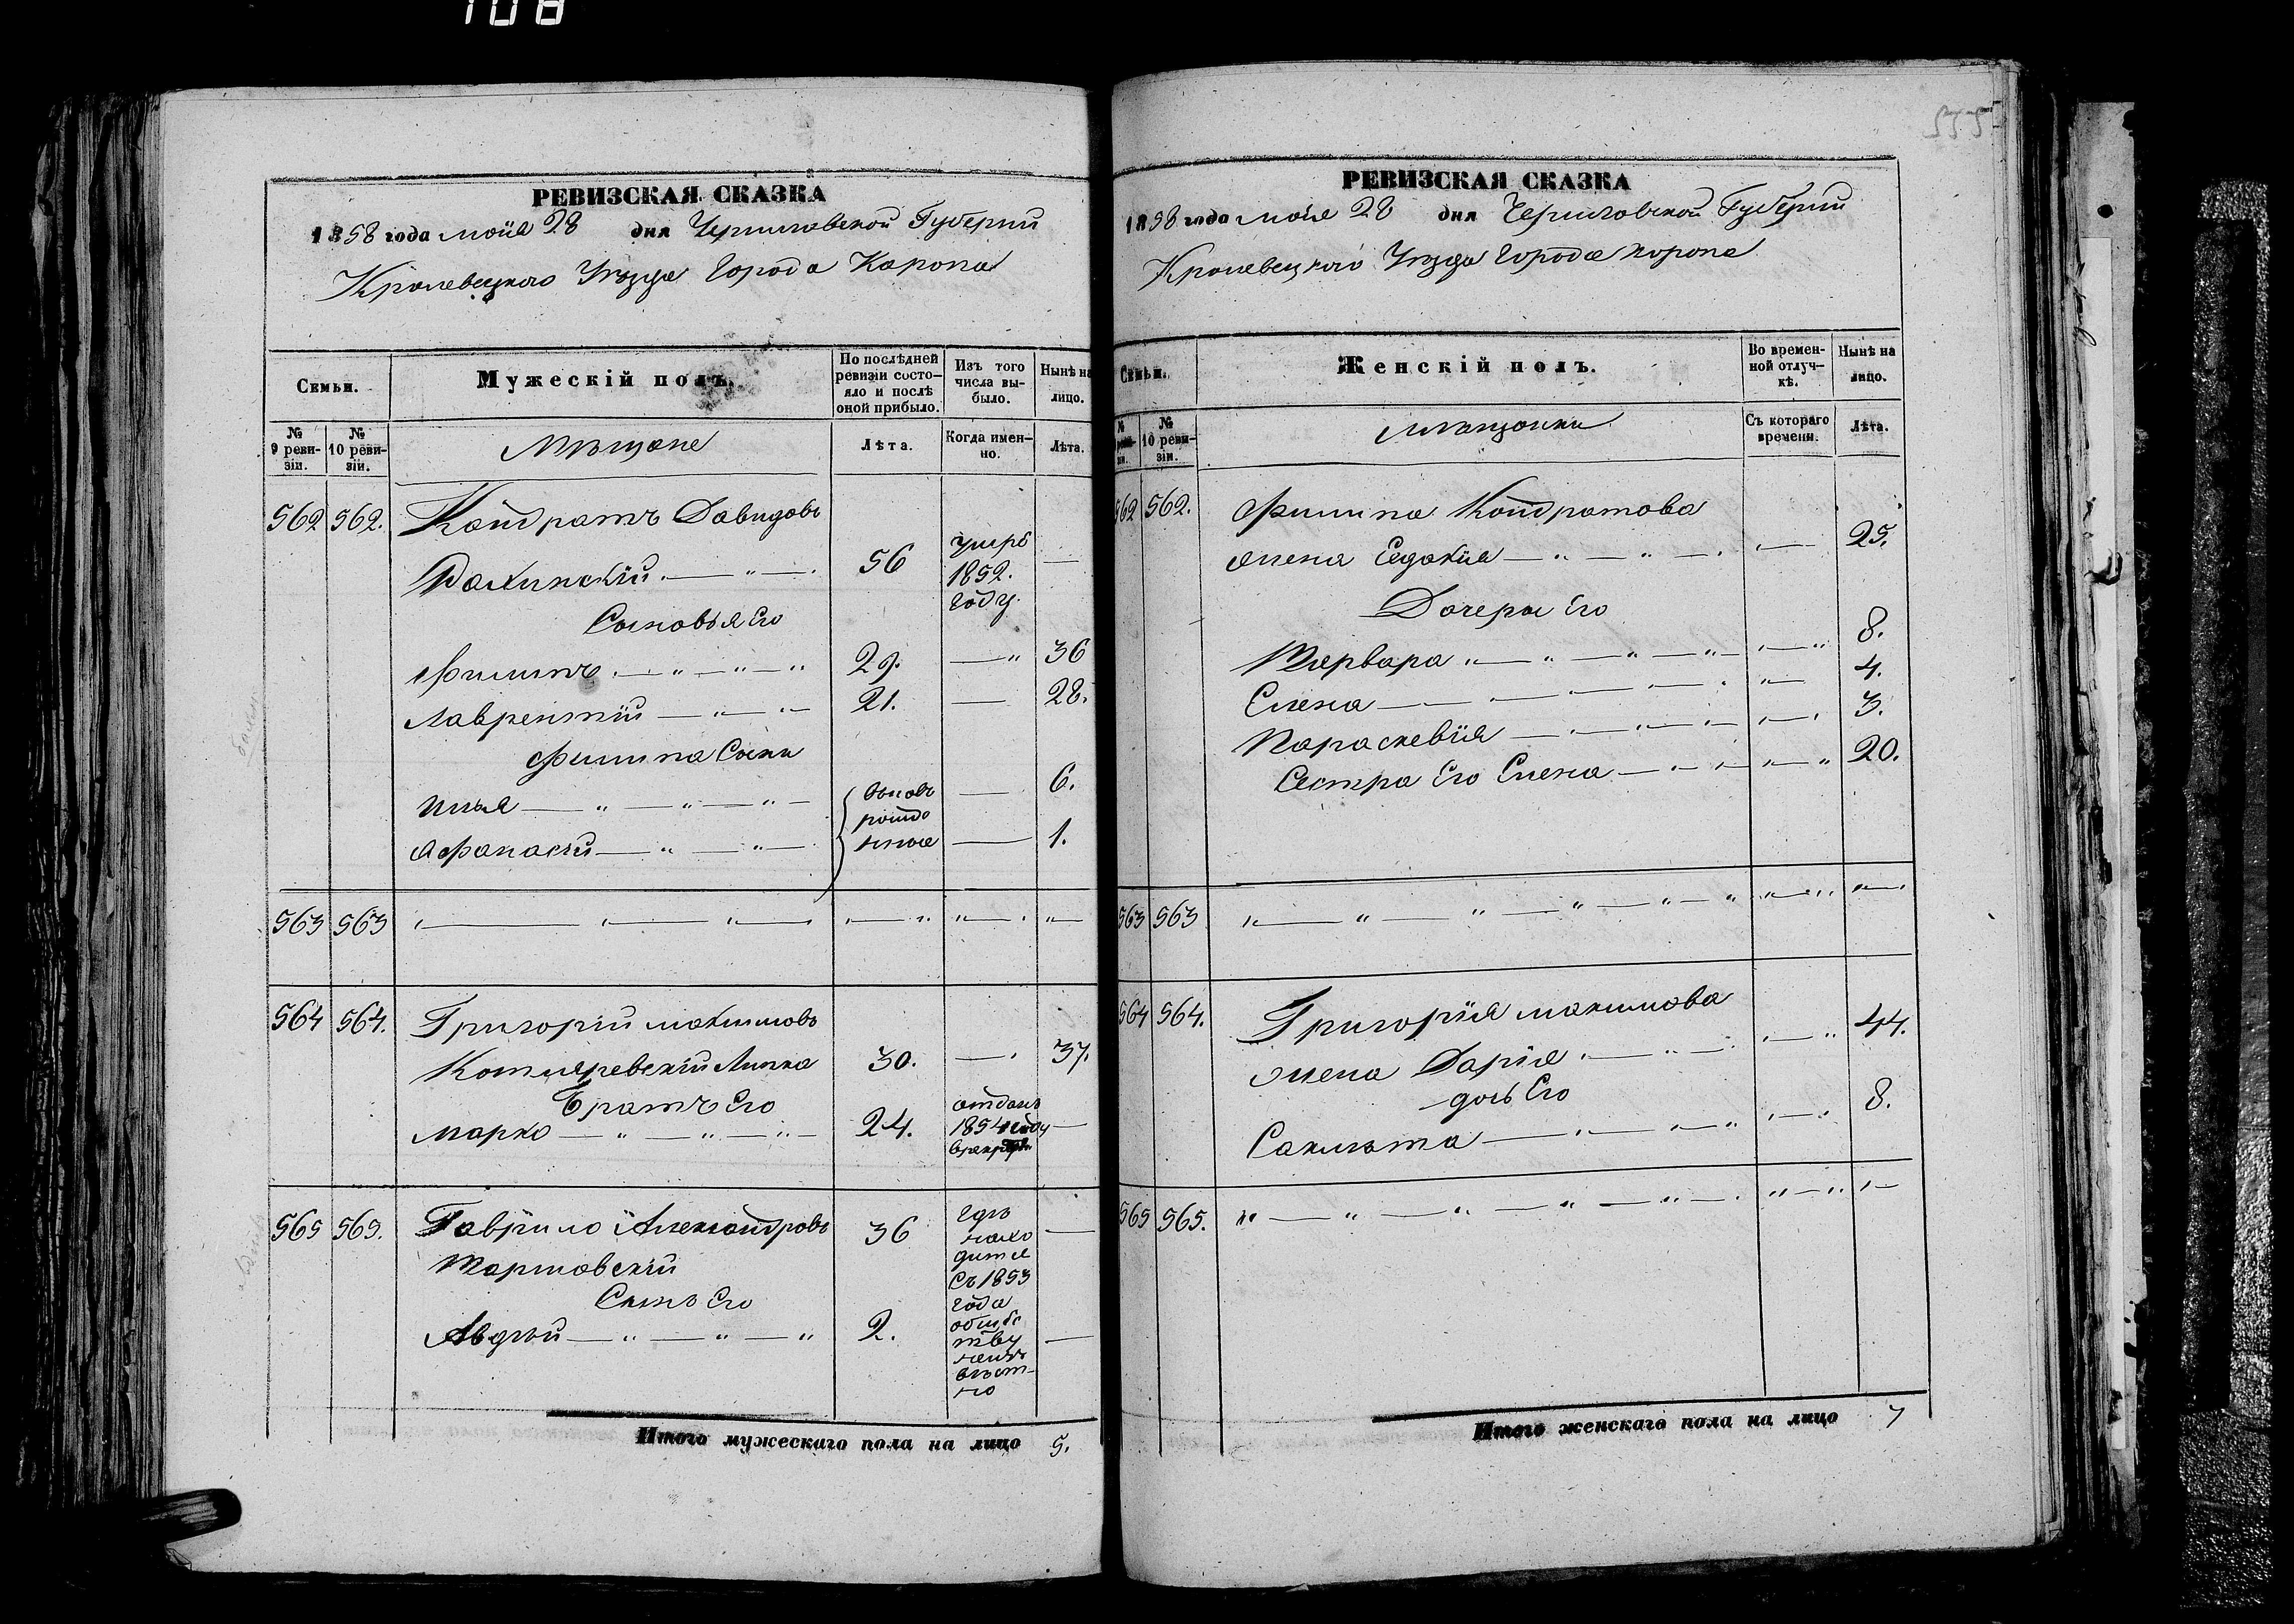 108
РЕВИЗСКАЯ СКАЗКА
1858 года маія 28 дня Черниговской Губерніи
Кролевецкаго Уѣзда Города Коропа
Семьи.
Мужескій полъ.
По послѣдней ревизіи состояло и послѣ оной прибыло.
Изъ того числа выбыло.
Нынѣ на лицо.
№ 9 ревизіи.
№ 10 ревизіи.
Мѣщане
Лѣта.
Когда именно.
Лѣта.
562 562. Кондратъ Давидовъ
56 умре 1852. году.
Сыновья Его
Филипъ 29. 36
Лаврентій 21. 28.
Филипа Сыны
Илья вновь рожденные 6.
Афанасій 1.
563 563
564 564. Григорій Максимовъ
Котляревскій Липка 30. 37.
Братъ Его
Марко 24. отданъ 1854 году в рекруты
565 565. Гаврило Александровъ 36 гдѣ находится съ 1853 года обществу неизвѣстно
Сынъ Его
Авдѣй 2.
Итого мужескаго пола на лицо 5.
555
РЕВИЗСКАЯ СКАЗКА
1858 года маія 28 дня Черниговской Губерніи
Кролевецкаго Уѣзда Города Коропа
Семьи.
Женскій полъ.
Во временной отлучкѣ.
Нынѣ на лицо.
№ 10 ревизіи.
мѣщанки
Съ котораго времени.
Лѣта.
562 562. Филипа Кондратова
жена Евдокія 25.
Дочери Его
Варвара 8.
Елена 4.
Параскевія 3.
Сестра Его Елена 20.
563 563
564 564. Григорія Максимова
жена Дарія 44.
дочь Его 8.
565 565.
Итого женскаго пола на лицо 7